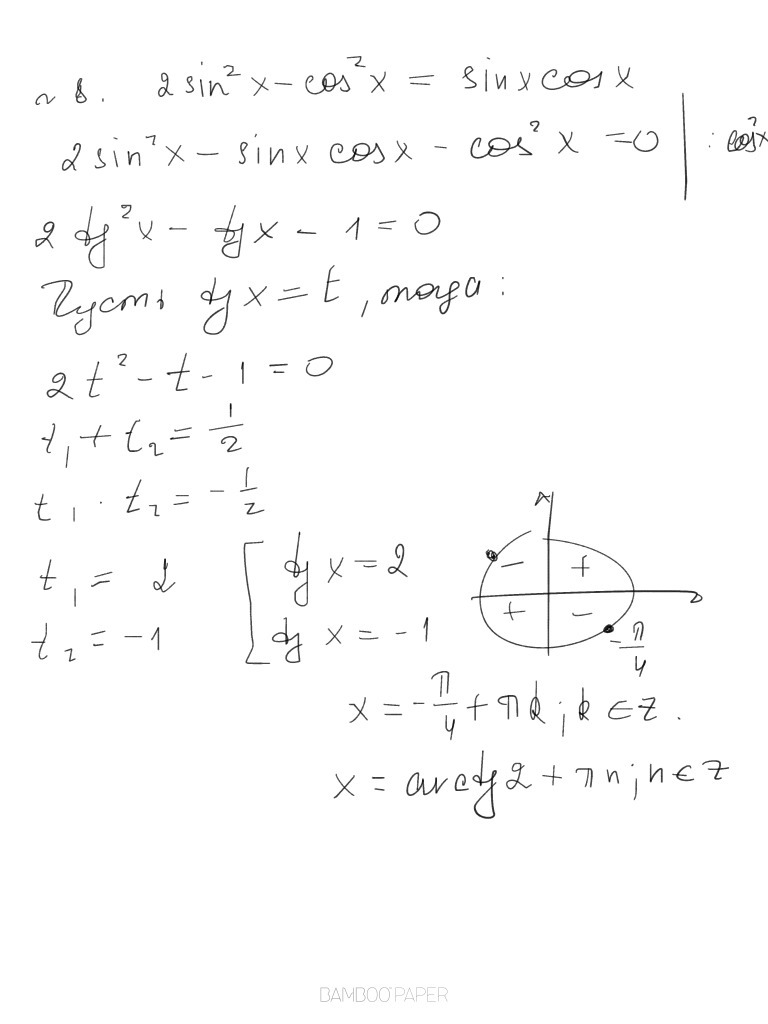 N 8. 2 sin² x – cos² x = sin x cos x
2 sin² x – sin x cos x – cos² x = 0 | : cos² x
2 tg² x – tg x – 1 = 0
Пусть tg x = t, тогда:
2 t² – t – 1 = 0
t₁ + t₂ = 1/2
t₁ · t₂ = – 1/2
t₁ = 2 [ tg x = 2
t₂ = –1 tg x = –1
– +
+ –
– π/4
x = – π/4 + πk; k ∈ Z.
x = arctg 2 + πn; n ∈ Z
BAMBOO PAPER